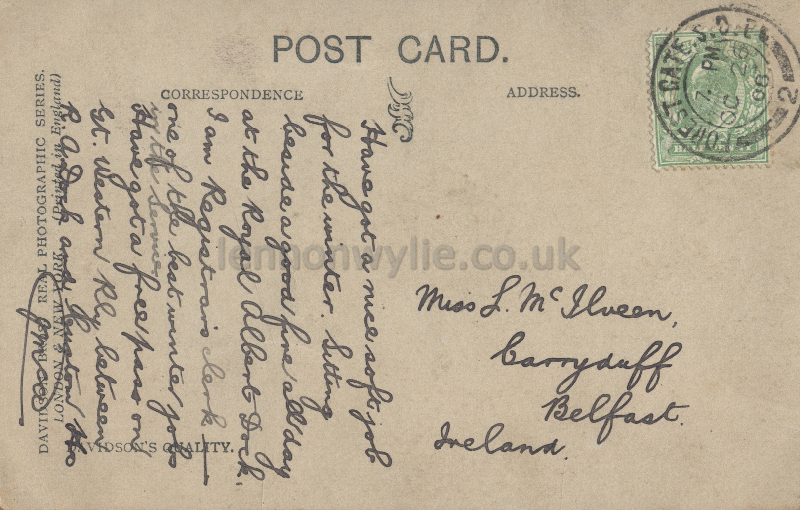 POST CARD.
CORRESPONDENCE
ADDRESS.
Have got a nice soft job
for the winter. Sitting
beside a good fire all day
at the Royal Albert Dock.
I am Registrars clerk
one of the best winter jobs
in the Service
Have got a free pass on
Gt. Western Rly between
R. A. Dock and Euston Ho
Miss L. McIlveen,
Carryduff
Belfast.
Ireland.
DAVIDSON BROS. REAL PHOTOGRAPHIC SERIES.
LONDON & NEW YORK. (Printed in England)
DAVIDSON'S QUALITY.
FOREST GATE. S.O.
7. PM
OC
06
2
lennonwylie.co.uk